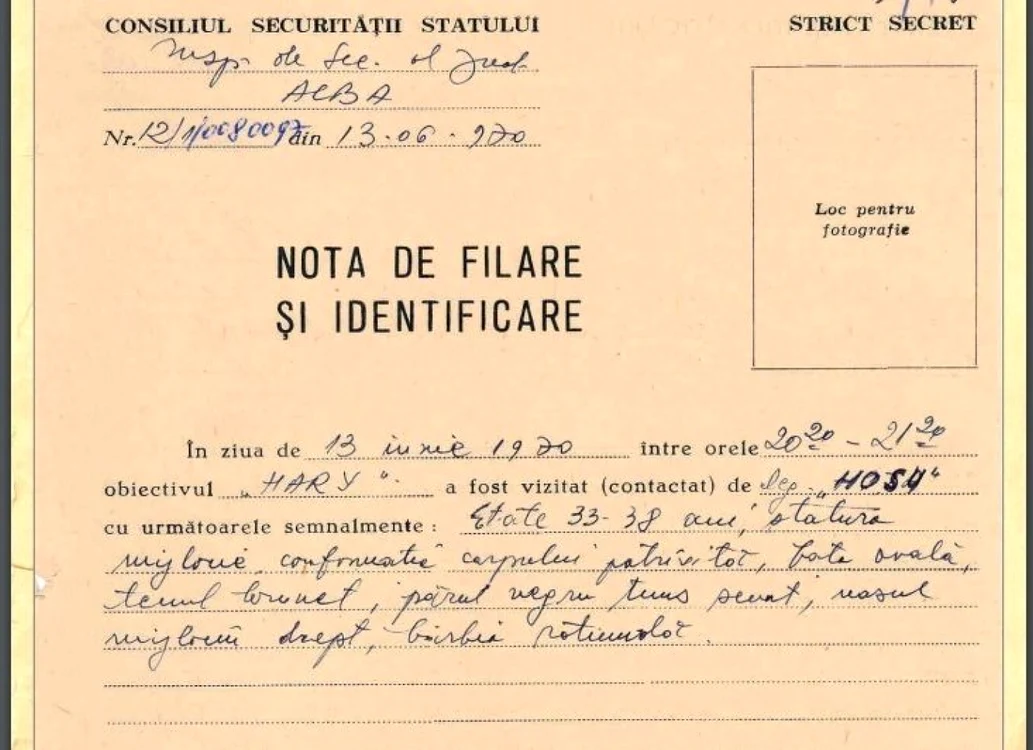 CONSILIUL SECURITĂȚII STATULUI
STRICT SECRET
Insp. de Sec. al Jud.
ALBA
Nr. 12/1/0080097 din 13.06.970
Loc pentru
fotografie
NOTA DE FILARE
ȘI IDENTIFICARE
În ziua de 13 iunie 1970 între orele 20²⁰ - 21²⁰
obiectivul „HARY“. a fost vizitat (contactat) de leg. „HOSU“
cu următoarele semnalmente : Etate 33-38 ani, statura
mijlocie, conformația corpului potrivită, fața ovală,
tenul brunet, părul negru tuns scurt, nasul
mijlociu drept, bărbia rotundă.